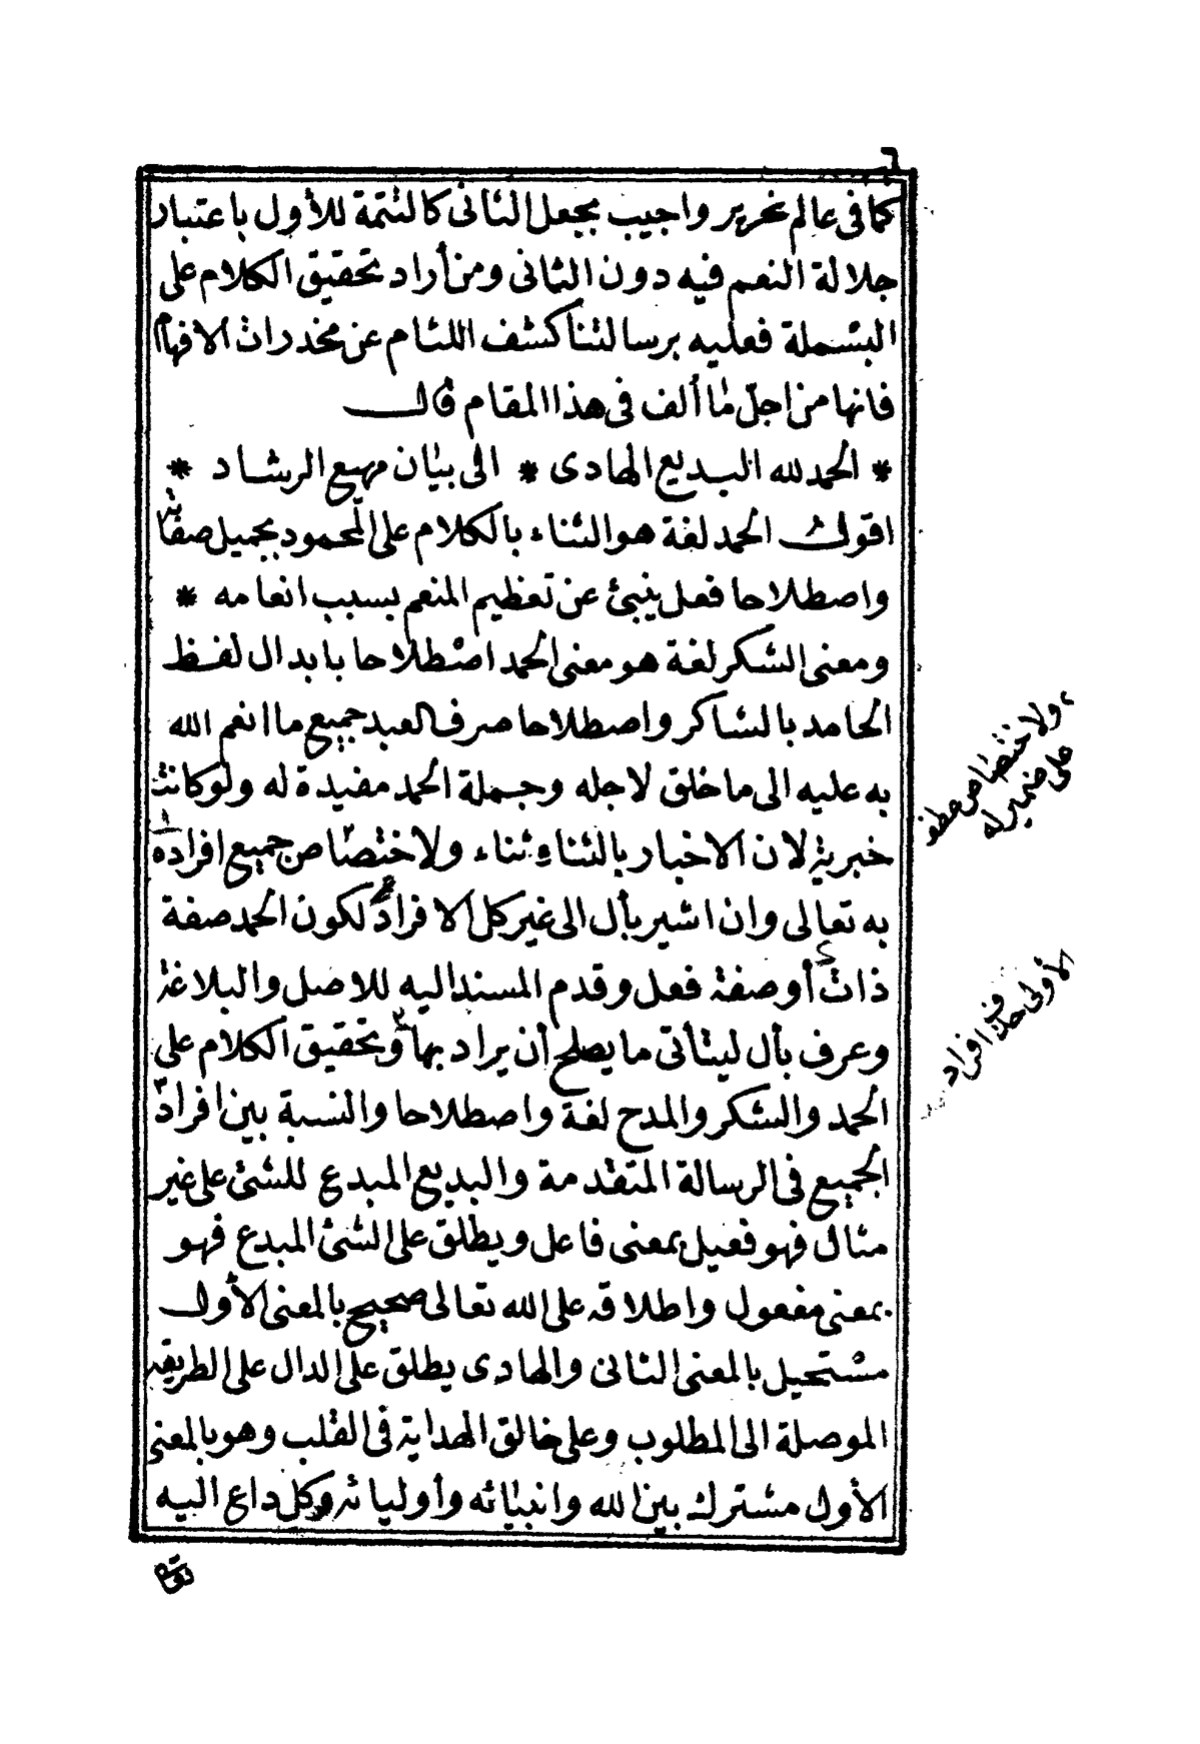 ٦
كما فى عالم نحرير واجيب بجعل الثانى كالتتمة للأول باعتبار
جلالة النعم فيه دون الثانى ومن أراد تحقيق الكلام على
البسملة فعليه برسالتنا كشف اللثام عن مخدرات الافهام
فانها من اجل ما ألف فى هذا المقام قال
* الحمد لله البديع الهادى * الى بيان مهيع الرشاد *
اقول الحمد لغة هو الثناء بالكلام على المحمود بجميل صفاته
واصطلاحا فعل ينبئ عن تعظيم المنعم بسبب انعامه *
ومعنى الشكر لغة هو معنى الحمد اصطلاحا بابدال لفظ
الحامد بالشاكر واصطلاحا صرف العبد جميع ما انعم الله
به عليه الى ما خلق لاجله وجملة الحمد مفيدة له ولو كانت
خبرية لان الاخبار بالثناء ثناء ولاختصاص جميع افراده
به تعالى وان اشير بأل الى غير كل الافراد لكون الحمد صفة
ذات أو صفة فعل وقدم المسند اليه للاصل والبلاغة
وعرف بأل ليتأتى ما يصلح أن يراد بها وتحقيق الكلام على
الحمد والشكر والمدح لغة واصطلاحا والنسبة بين افراد
الجميع فى الرسالة المتقدمة والبديع المبدع للشئ على غير
مثال فهو فعيل بمعنى فاعل ويطلق على الشئ المبدع فهو
بمعنى مفعول واطلاقه على الله تعالى صحيح بالمعنى الأول
مستحيل بالمعنى الثانى والهادى يطلق على الدال على الطريقة
الموصلة الى المطلوب وعلى خالق الهداية فى القلب وهو بالمعنى
الأول مشترك بين الله وانبيائه وأوليائه وكل داع اليه
ولاختصاص عطف
على ضمير له
الأولى حذف
افراد